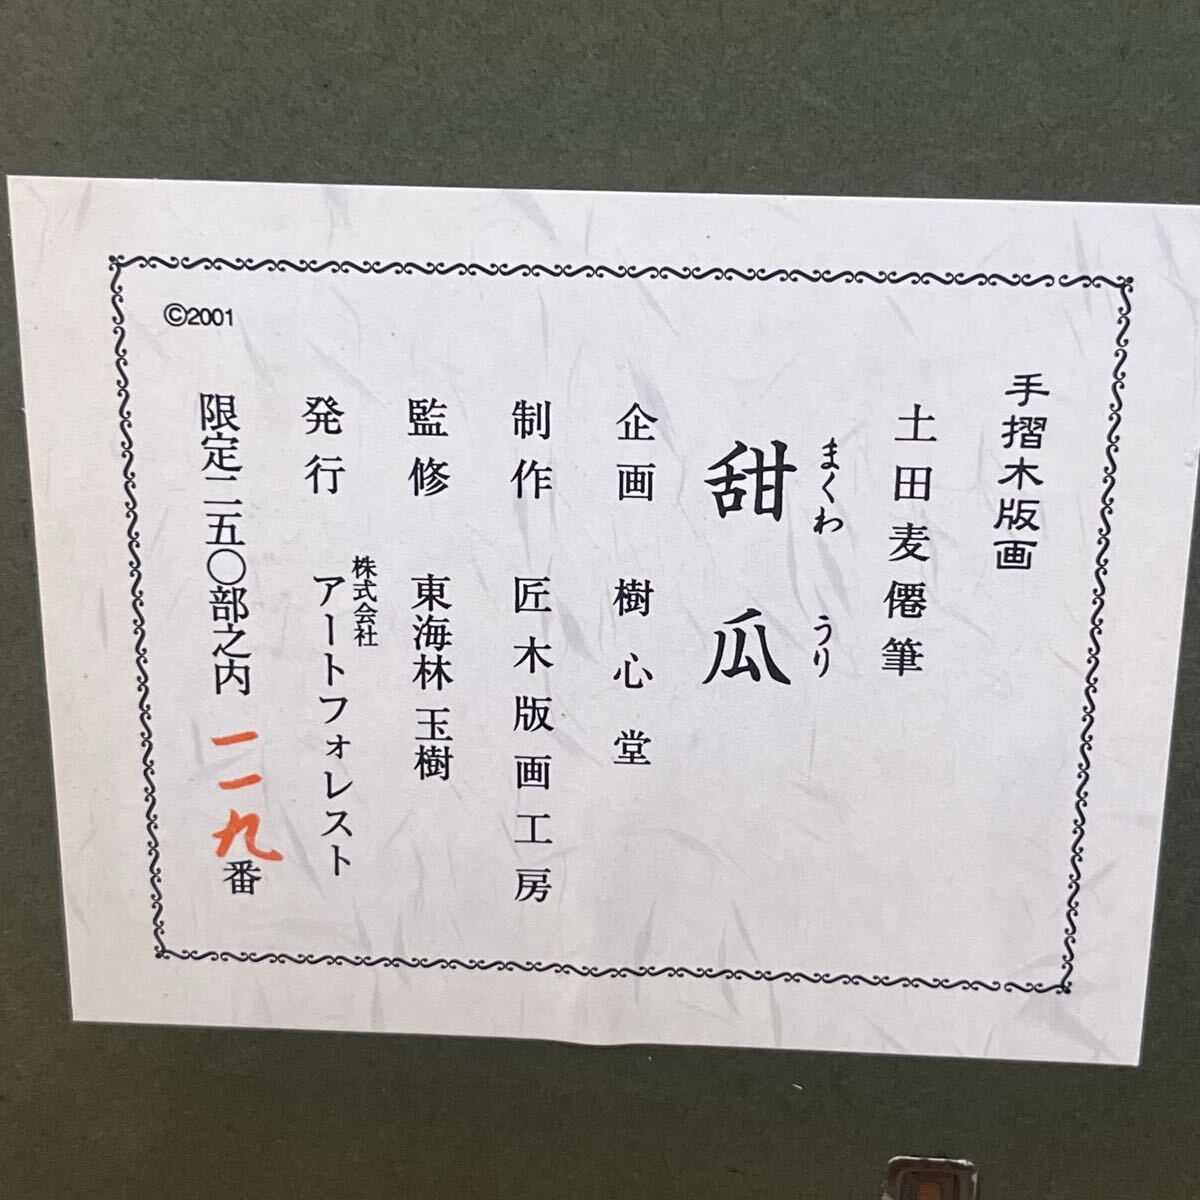 手摺木版画
土田麦僊筆
まくわ うり
甜瓜
企画 樹心堂
制作 匠木版画工房
監修 東海林玉樹
発行 株式会社 アートフォレスト
限定二五〇部之内 一一九番
©2001